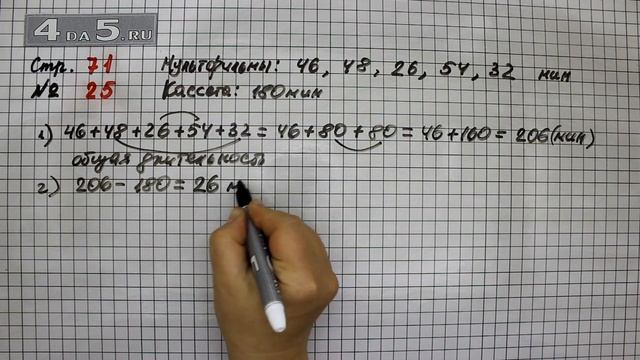 4 DA 5.RU
Стр. 71 Мультфильмы: 46, 48, 26, 54, 32 мин
№ 25 Кассета: 180 мин
1) 46+48+26+54+32=46+80+80=46+160=206(мин)
общая длительность
2) 206-180=26 м